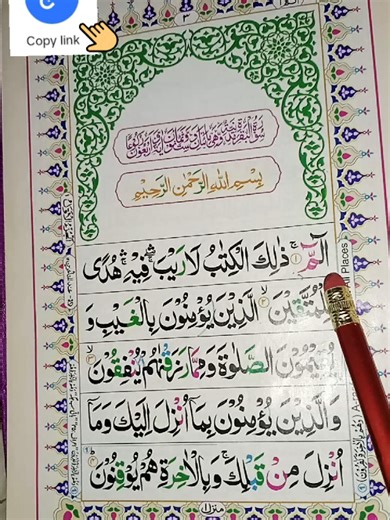 Copy link
سُوْرَةُ الْبَقَرَةِ مَدَنِيَّةٌ وَّهِيَ مِائَتَانِ وَسِتٌّ وَّثَمَانُوْنَ اٰيَةً وَّاَرْبَعُوْنَ رُكُوْعًا
بِسْمِ اللهِ الرَّحْمٰنِ الرَّحِيْمِ
الٓمّٓ ۚ﴿۱﴾ ذٰلِكَ الْكِتٰبُ لَا رَيْبَ ۛۚ فِيْهِ ۛۚ هُدًى
لِّلْمُتَّقِيْنَ ۙ﴿۲﴾ الَّذِيْنَ يُؤْمِنُوْنَ بِالْغَيْبِ وَ
يُقِيْمُوْنَ الصَّلٰوةَ وَمِمَّا رَزَقْنٰهُمْ يُنْفِقُوْنَ ۙ﴿۳﴾
وَالَّذِيْنَ يُؤْمِنُوْنَ بِمَآ اُنْزِلَ اِلَيْكَ وَمَآ
اُنْزِلَ مِنْ قَبْلِكَ ۚ وَبِالْاٰخِرَةِ هُمْ يُوْقِنُوْنَ ؕ﴿۴﴾
منزل ۱
Places